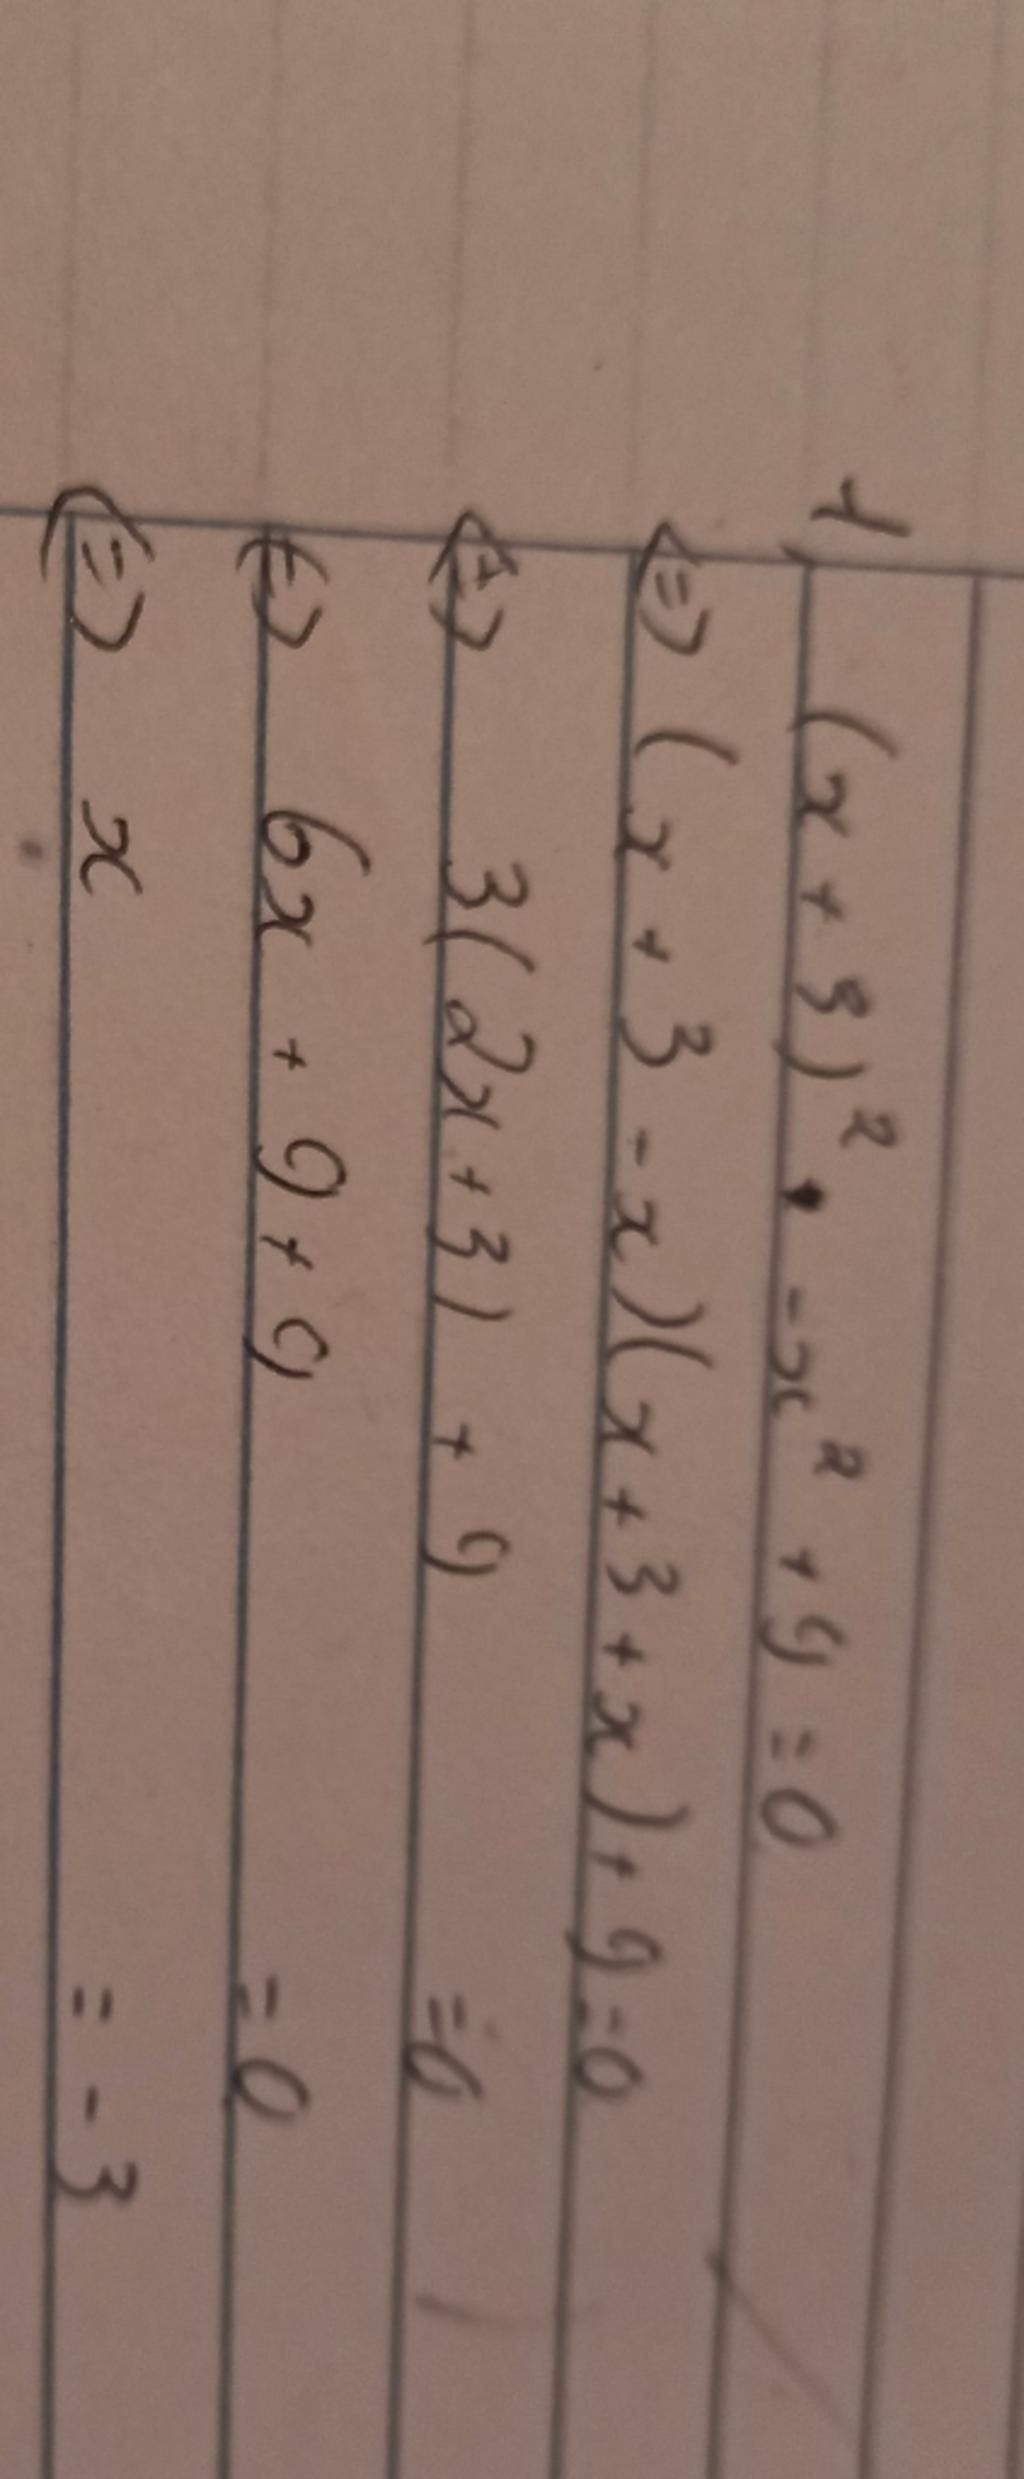 1 (x + 3)² - x² + 9 = 0
<=> (x + 3 - x)(x + 3 + x) + 9 = 0
<=> 3(2x + 3) + 9 = 0
<=> 6x + 9 + 9 = 0
<=> x = -3